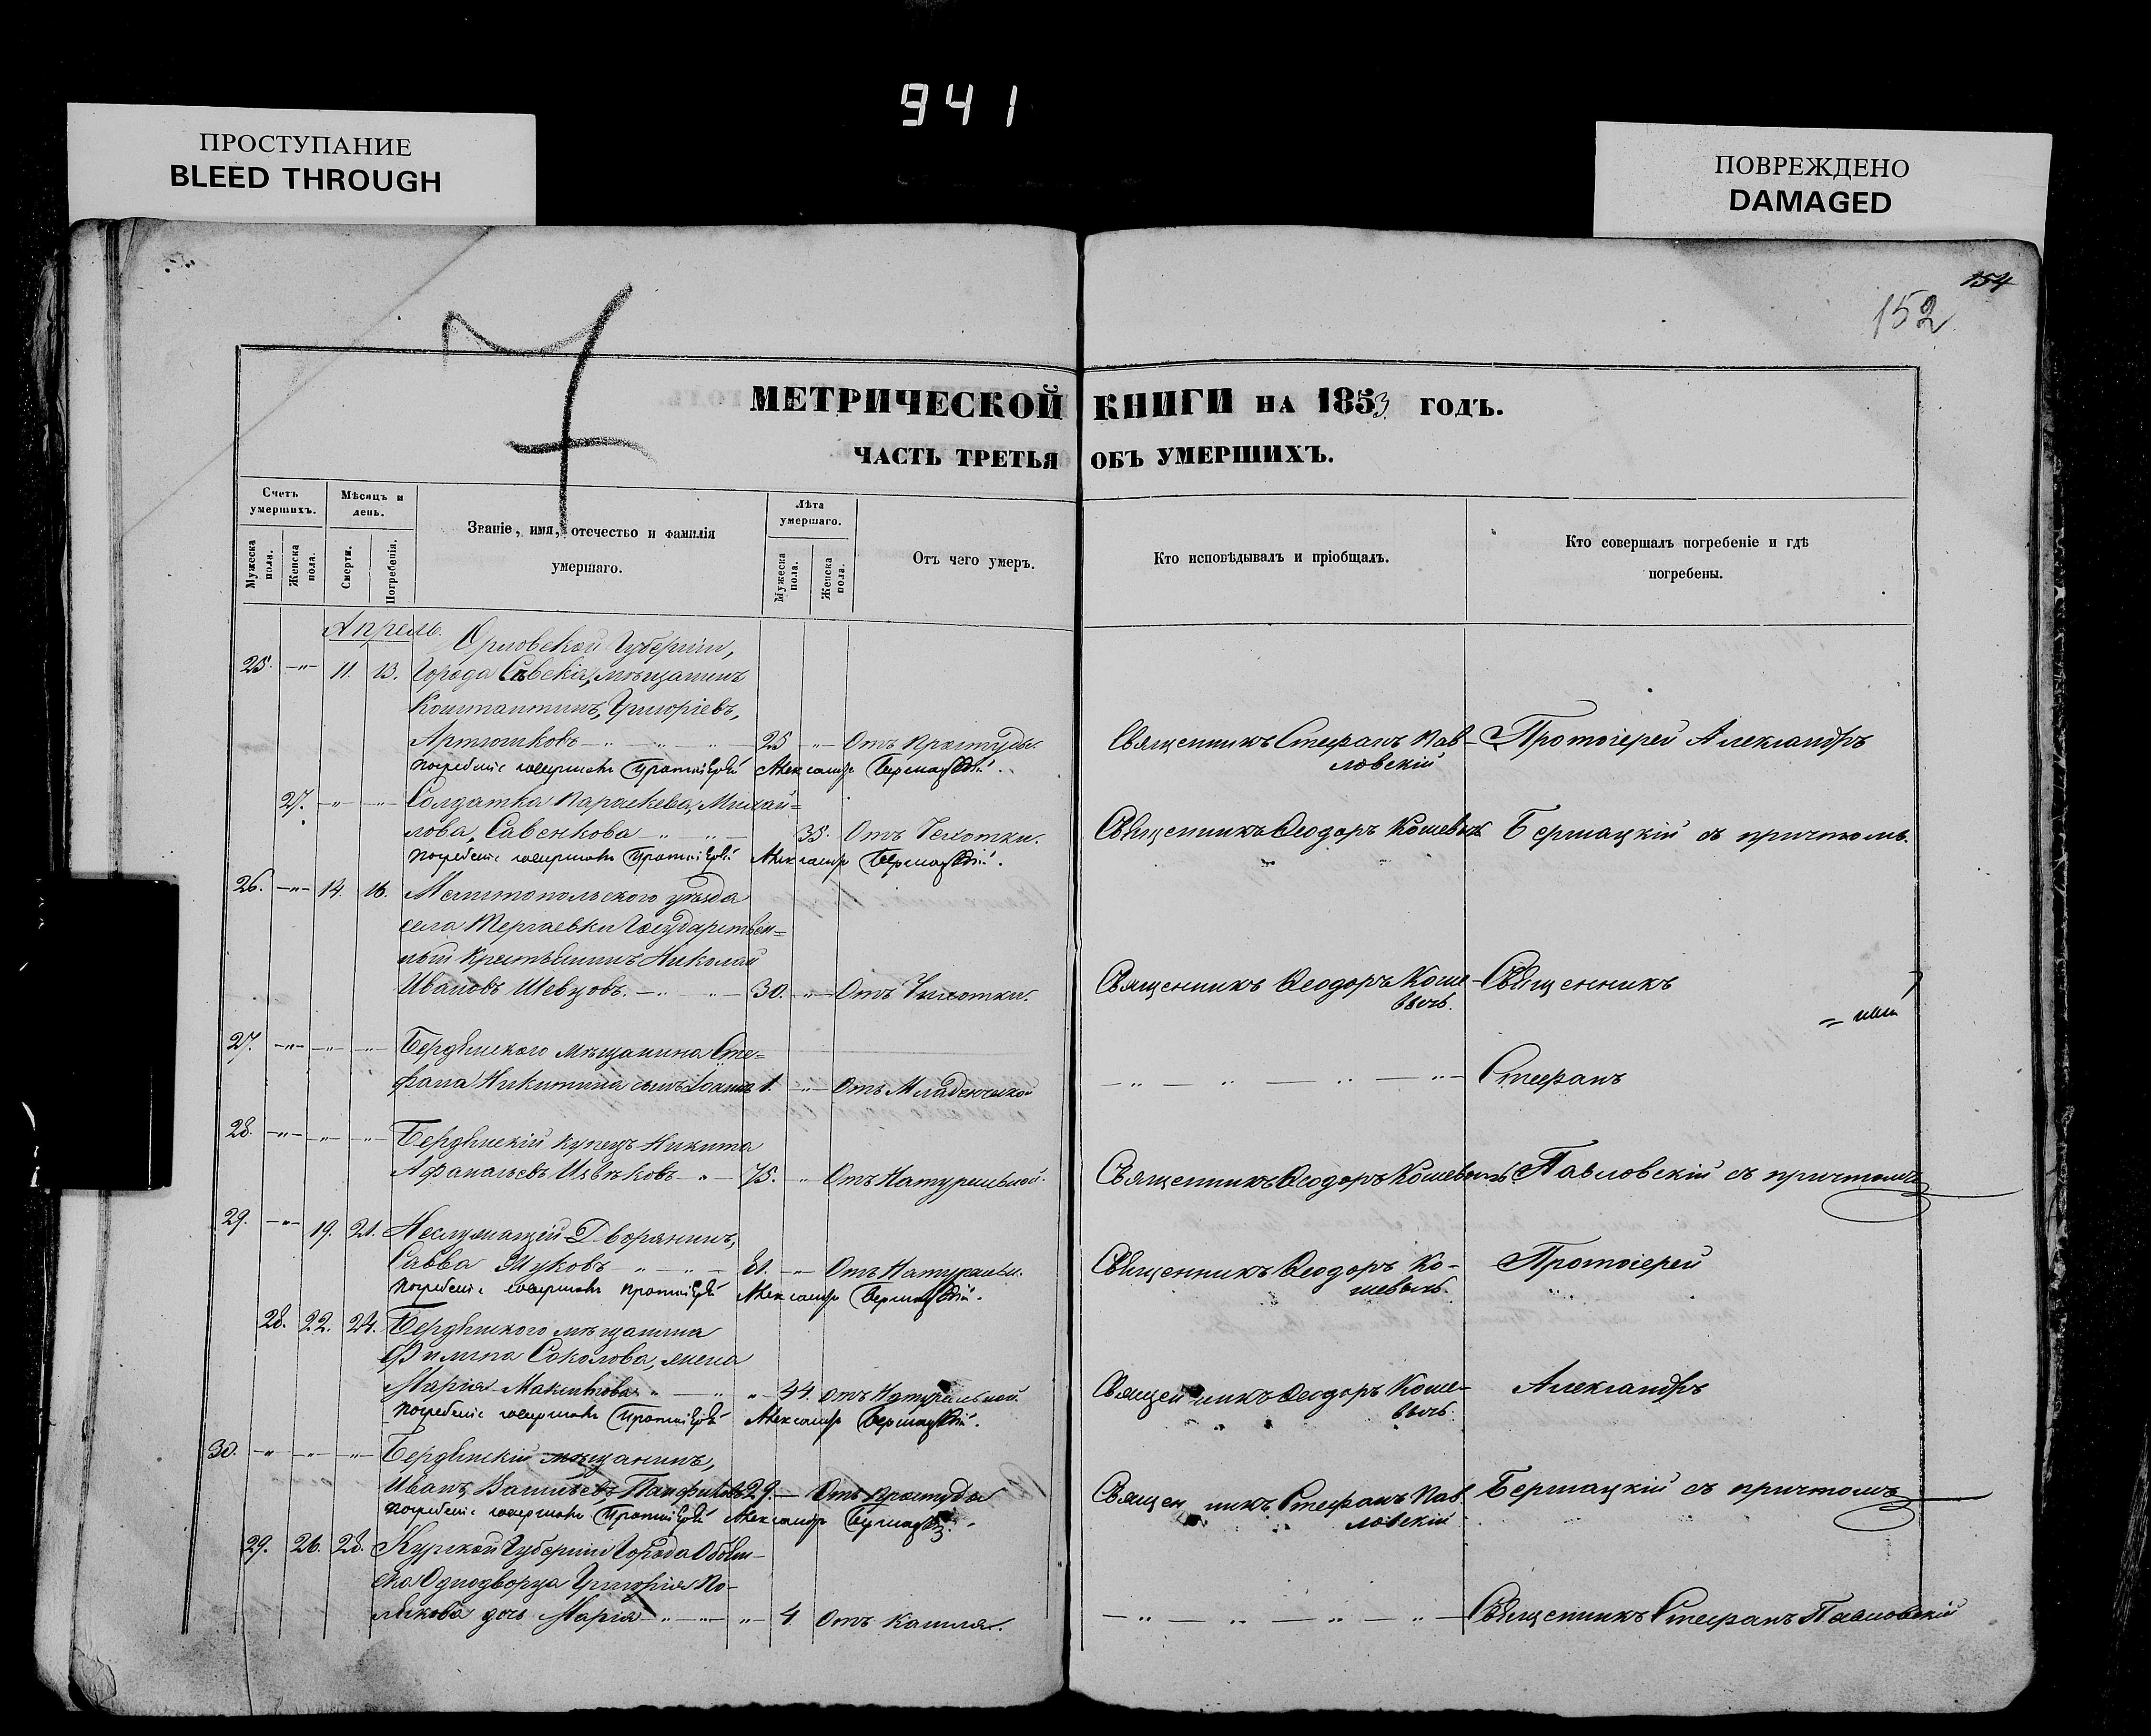 941
ПРОСТУПАНИЕ
BLEED THROUGH
ПОВРЕЖДЕНО
DAMAGED
154
152
7
МЕТРИЧЕСКОЙ КНИГИ НА 1853 ГОДЪ.
ЧАСТЬ ТРЕТЬЯ ОБЪ УМЕРШИХЪ.
Счетъ умершихъ.
Мужеска пола.
Женска пола.
Мѣсяцъ и день.
Смерти.
Погребенія.
Званіе, имя, отечество и фамилія
умершаго.
Лѣта умершаго.
Мужеска пола.
Женска пола.
Отъ чего умеръ.
Кто исповѣдывалъ и пріобщалъ.
Кто совершалъ погребеніе и гдѣ
погребены.
Апрель.
Орловской Губерніи,
25. —"— 11. 13. Города Сѣвска, мѣщанинъ
Константинъ, Григоріевъ,
Артюшковъ 25 —"— Отъ Простуды. Священникъ Стефанъ Пав- Протоіерей Александръ
ловскій
Погребеніе совершалъ Протоіерей Александръ Бершацкій.
27. —"— —"— Солдатка Параскева, Михай=
лова, Савенкова 35. Отъ Чехотки. Священникъ Ѳеодоръ Кошевичъ Бершацкій съ причтомъ.
Погребеніе совершалъ Протоіерей Александръ Бершацкій.
26. —"— 14. 16. Мелитопольского уѣзда
села Тергаевки Государствен=
ный Крестьянинъ Николай
Ивановъ Шевцовъ. 30. —"— Отъ Чихотки. Священникъ Ѳеодоръ Коше- Священникъ
вичъ.
27. —"— —"— —"— Бердянского мѣщанина Сте=
фана Никитина сынъ Іоаннъ 1. —"— Отъ Младенческой Стефанъ
28. —"— —"— —"— Бердянскій купецъ Никита
Афанасьевъ Извѣковъ 75. —"— Отъ Натуральной. Священникъ Ѳеодоръ Кошевичъ Павловскій съ причтомъ
29. —"— 19. 21. Неслужащій Дворянинъ,
Савва Жуковъ 81. — Отъ Натуральн. Священникъ Ѳеодоръ Ко- Протоіерей
шевичъ.
Погребеніе совершалъ Протоіерей Александръ Бершацкій.
28. 22. 24. Бердянского мѣщанина
Филипа Соколова, жена
Марія 44. отъ Натуральной Священникъ Ѳеодоръ Коше- Александръ
вичъ.
Погребеніе совершалъ Протоіерей Александръ Бершацкій.
30. —"— —"— —"— Бердянскій мѣщанинъ,
Иванъ Васильевъ, 29. — Отъ Простуды Священникъ Стефанъ Пав- Бершацкій съ причтомъ
ловскій
Погребеніе совершалъ Протоіерей Александръ
29. 26. 28. Курской Губерніи Города Обоян-
ска Однодворца Григорія По-
лякова дочь Марія —"— 4. Отъ Кашля. Священникъ Стефанъ Павловскій